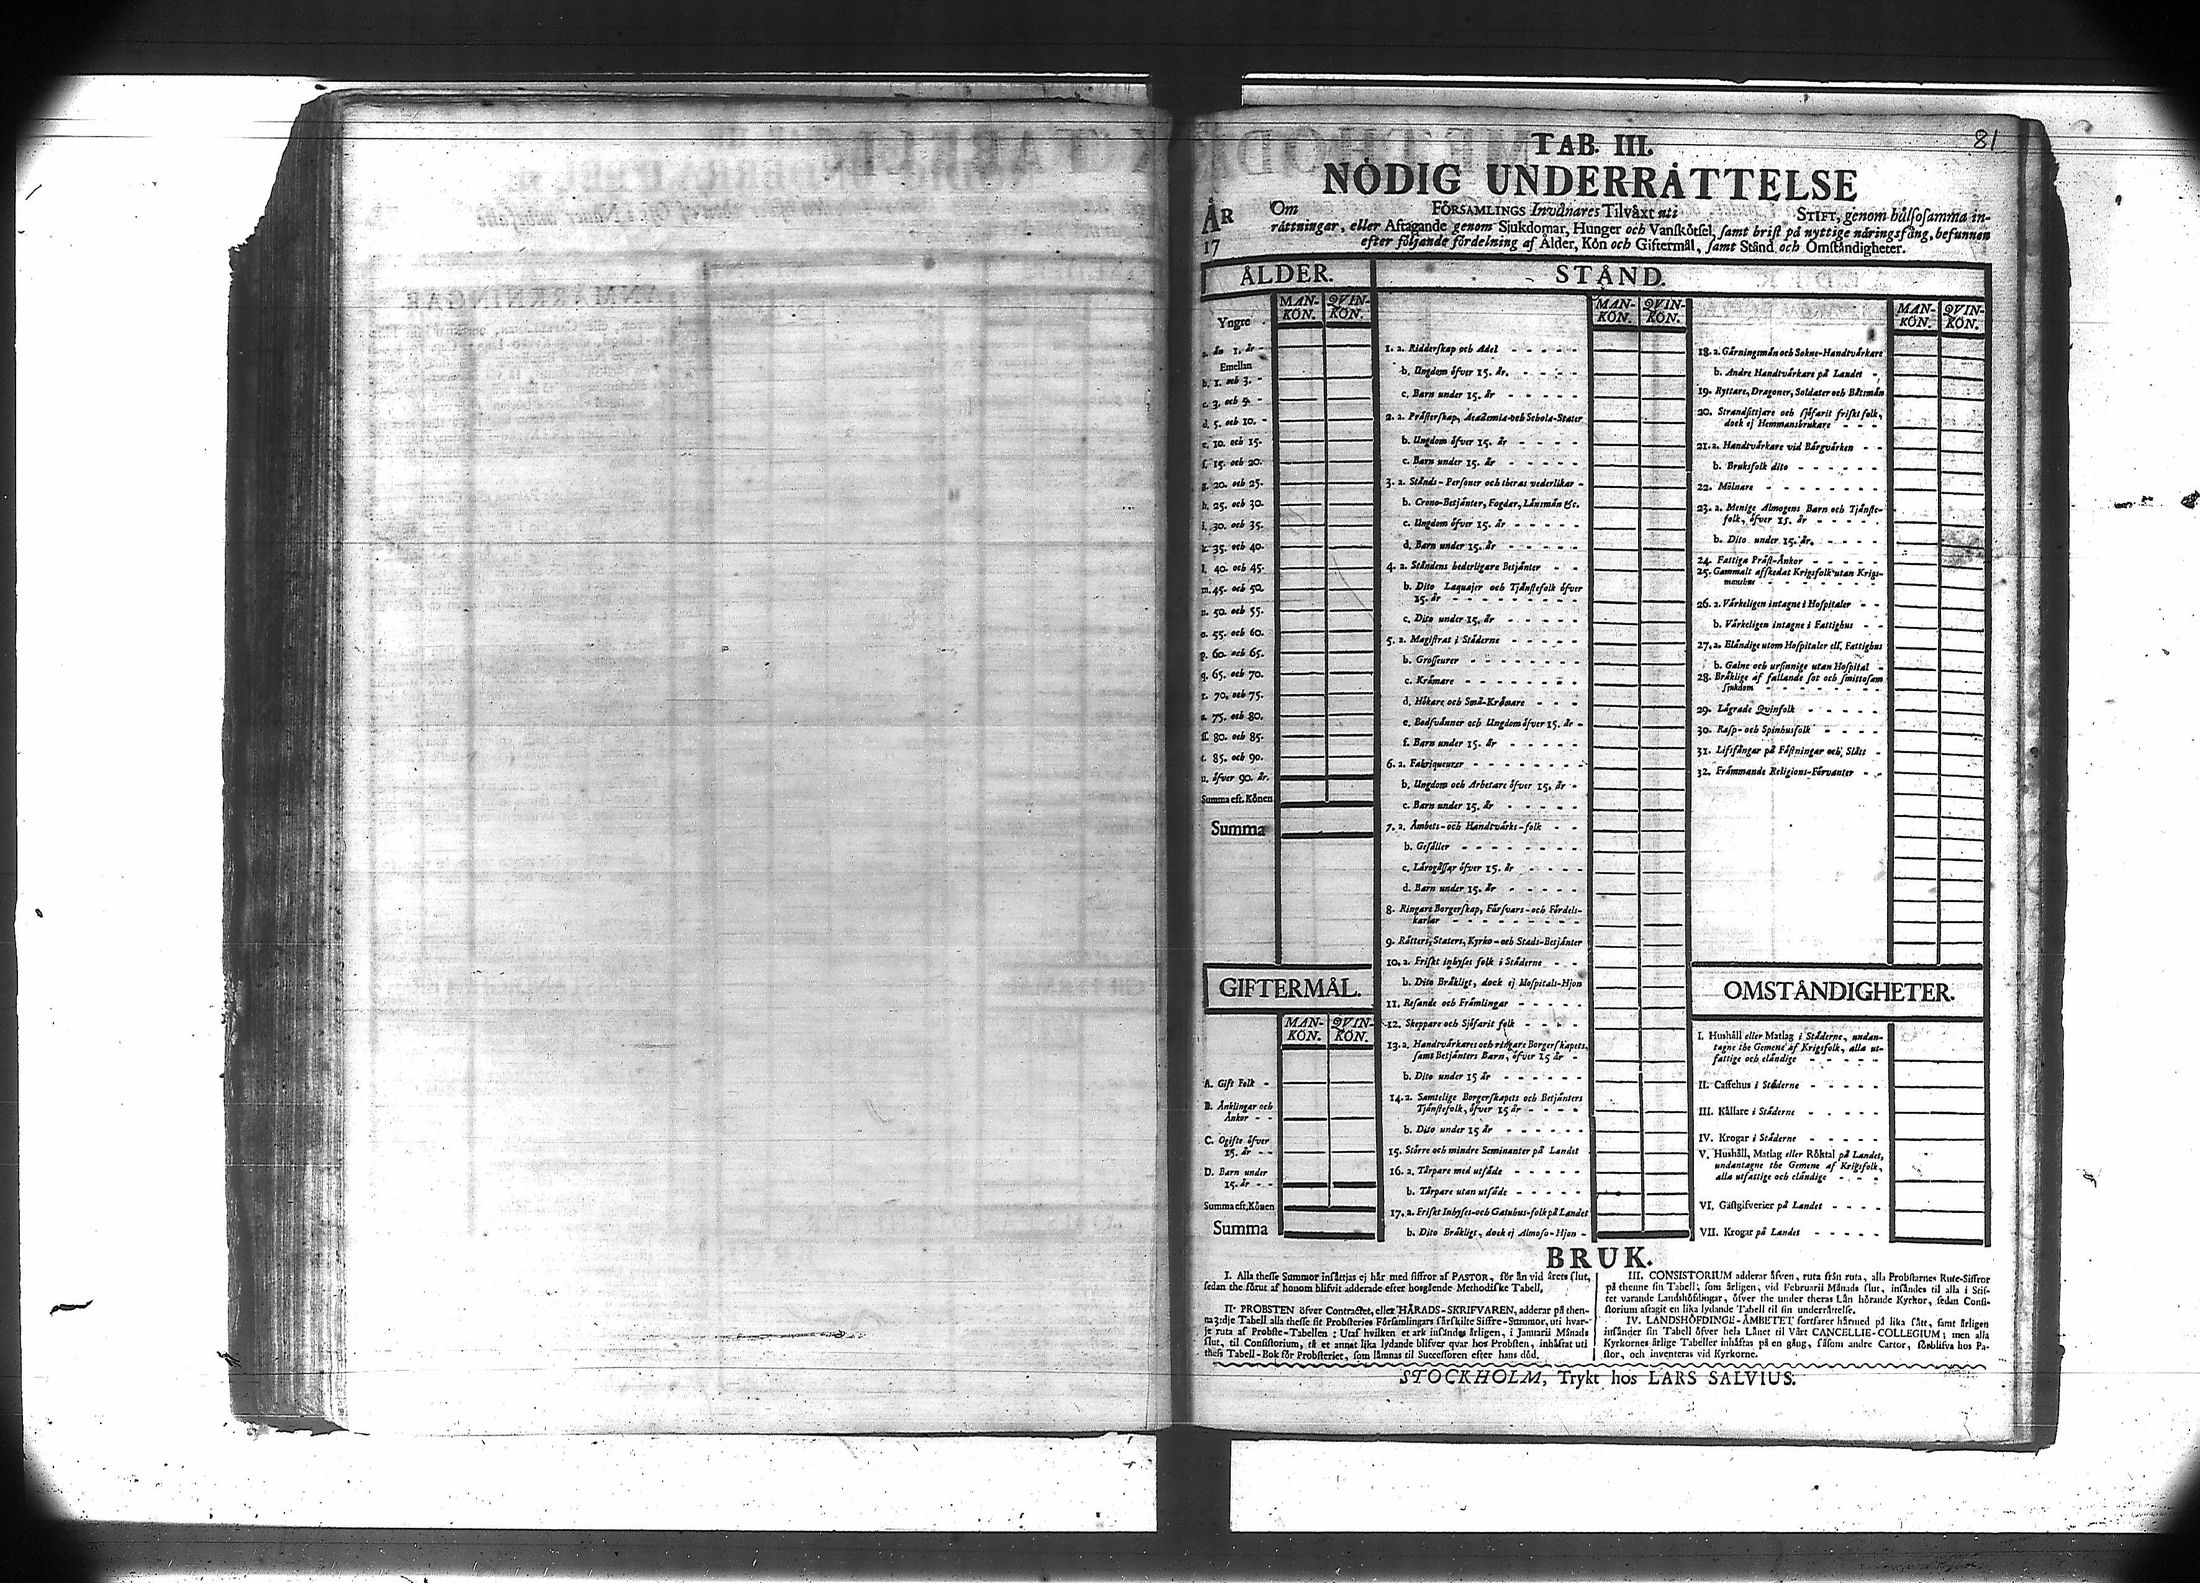 81
TAB. III.
NÖDIG UNDERRÄTTELSE
ÅR
17
Om FÖRSAMLINGS Invånares Tilväxt uti STIFT, genom hälsosamma in-
rättningar, eller Aftagande genom Sjukdomar, Hunger och Vanskötsel, samt brist på nyttige näringsfång, befunnen
efter följande fördelning af Ålder, Kön och Giftermål, samt Stånd och Omständigheter.
ÅLDER.
MAN-KÖN. QVIN-KÖN.
Yngre
a. än 1. år
Emellan
b. 1. och 3.
c. 3. och 5.
d. 5. och 10.
e. 10. och 15.
f. 15. och 20.
g. 20. och 25.
h. 25. och 30.
i. 30. och 35.
k. 35. och 40.
l. 40. och 45.
m. 45. och 50.
n. 50. och 55.
o. 55. och 60.
p. 60. och 65.
q. 65. och 70.
r. 70. och 75.
s. 75. och 80.
ss. 80. och 85.
t. 85. och 90.
u. öfver 90. år.
Summa eft. Könen
Summa
GIFTERMÅL.
MAN-KÖN. QVIN-KÖN.
A. Gift Folk
B. Änklingar och
Änkor
C. Ogifte öfver
15. år
D. Barn under
15. år
Summa eft. Könen
Summa
STÅND.
MAN-KÖN. QVIN-KÖN.
1. a. Ridderskap och Adel
b. Ungdom öfver 15. år.
c. Barn under 15. år
2. a. Prästerskap, Academia- och Schola-Stater
b. Ungdom öfver 15. år
c. Barn under 15. år
3. a. Stånds-Personer och theras vederlikar
b. Crono-Betjänter, Fogdar, Länsmän &c.
c. Ungdom öfver 15. år
d. Barn under 15. år
4. a. Ståndens hederligare Betjänter
b. Dito Laquajer och Tjänstefolk öfver
15. år
c. Dito under 15. år
5. a. Magistrat i Städerne
b. Grosseurer
c. Krämare
d. Hökare och Små-Krämare
e. Bodsvänner och Ungdom öfver 15. år
f. Barn under 15. år
6. a. Fabriqueurer
b. Ungdom och Arbetare öfver 15. år
c. Barn under 15. år
7. a. Ämbets- och Handtvärks-folk
b. Gesäller
c. Lärogåssar öfver 15. år
d. Barn under 15. år
8. Ringare Borgerskap, Försvars- och Fördels-
karlar
9. Rätters, Staters, Kyrko- och Stads-Betjänter
10. a. Friskt inhyses folk i Städerne
b. Dito Bräkligt, dock ej Hospitals-Hjon
11. Resande och Främlingar
12. Skeppare och Sjöfarit folk
13. a. Handtvärkares och ringare Borgerskapets,
samt Betjänters Barn, öfver 15 år
b. Dito under 15 år
14. a. Samtelige Borgerskapets och Betjänters
Tjänstefolk, öfver 15 år
b. Dito under 15 år
15. Större och mindre Seminanter på Landet
16. a. Tårpare med utsäde
b. Tårpare utan utsäde
17. a. Friskt Inhyses- och Gatuhus-folk på Landet
b. Dito Bräkligt, dock ej Almoso-Hjon
MAN-KÖN. QVIN-KÖN.
18. a. Gärningsmän och Sokne-Handtvärkare
b. Andre Handtvärkare på Landet
19. Ryttare, Dragoner, Soldater och Båtsmän
20. Strandsittjare och sjöfarit friskt folk,
dock ej Hemmansbrukare
21. a. Handtvärkare vid Bärgvärken
b. Bruksfolk dito
22. Mölnare
23. a. Menige Almogens Barn och Tjänste-
folk, öfver 15. år
b. Dito under 15. år.
24. Fattiga Präst-Änkor
25. Gammalt afskedat Krigsfolk utan Krigs-
manshus
26. a. Värkeligen intagne i Hospitaler
b. Värkeligen intagne i Fattighus
27. a. Eländige utom Hospitaler ell. Fattighus
b. Galne och ursinnige utan Hospital
28. Bräklige af fallande sot och smittosam
sjukdom
29. Lägrade Qvinfolk
30. Rasp- och Spinhusfolk
31. Lifsfångar på Fästningar och Slått
32. Främmande Religions-Förvanter
OMSTÄNDIGHETER.
I. Hushåll eller Matlag i Städerne, undan-
tagne the Gemene af Krigsfolk, alla ut-
fattige och eländige
II. Caffehus i Städerne
III. Källare i Städerne
IV. Krogar i Städerne
V. Hushåll, Matlag eller Röktal på Landet,
undantagne the Gemene af Krigsfolk,
alla utfattige och eländige
VI. Gästgifverier på Landet
VII. Krogar på Landet
BRUK.
I. Alla thesse Summor insättjas ej här med siffror af PASTOR, för än vid årets slut,
sedan the förut af honom blifvit adderade efter hosgående Methodiske Tabell.
II. PROBSTEN öfver Contractet, eller HÄRADS-SKRIFVAREN, adderar på then-
na 3:dje Tabell alla thesse sit Probsteries Församlingars särskilte Siffre-Summor, uti hvar-
je ruta af Probste-Tabellen: Utaf hvilken et ark insändes årligen, i Januarii Månads
slut, til Consistorium, tå et annat lika lydande blifver qvar hos Probsten, inhäftat uti
thess Tabell-Bok för Probsteriet, som lämnas til Successoren efter hans död.
III. CONSISTORIUM adderar äfven, ruta från ruta, alla Probstarnes Rute-Siffror
på thenne sin Tabell; som årligen, vid Februarii Månads slut, insändes til alla i Stif-
tet varande Landshöfdingar, öfver the under theras Län hörande Kyrkor, sedan Consi-
storium aftagit en lika lydande Tabell til sin underrättelse.
IV. LANDSHÖFDINGE-ÄMBETET fortfarer härmed på lika sätt, samt årligen
insänder sin Tabell öfver hela Länet til Vårt CANCELLIE-COLLEGIUM; men alla
Kyrkornes årlige Tabeller inhäftas på en gång, såsom andre Cartor, förblifva hos Pa-
stor, och inventeras vid Kyrkorne.
STOCKHOLM, Trykt hos LARS SALVIUS.